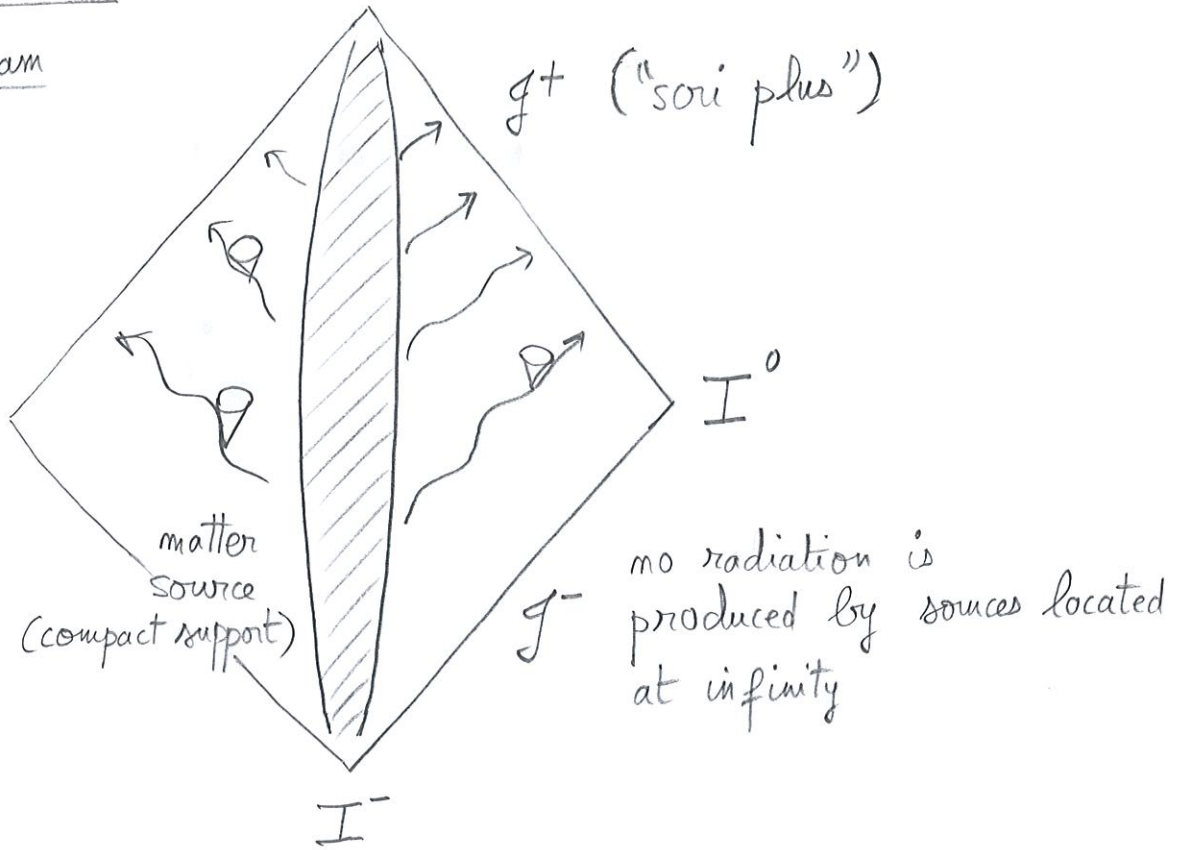 am
𝒥+ ("scri plus")
I⁰
matter
source
(compact support)
𝒥-
no radiation is
produced by sources located
at infinity
I⁻